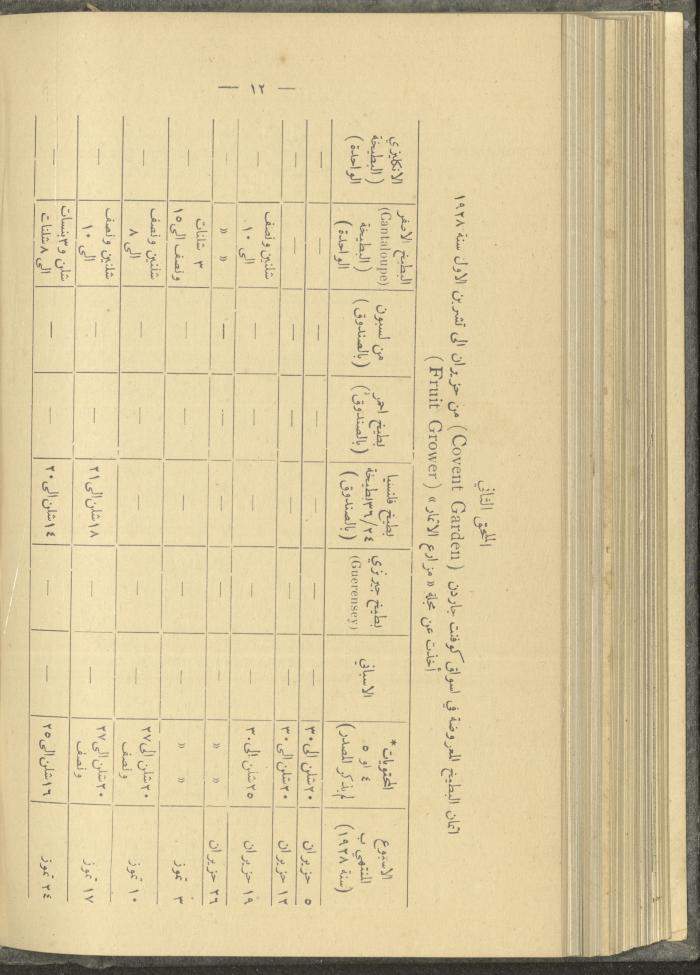 — ١٢ —
الملحق الثاني
اثمان البطيخ المعروضة في اسواق كوفنت جاردن (Covent Garden) من حزيران الى تشرين الاول سنة ١٩٢٨
أخذت عن مجلة « مزارع الاثمار » (Fruit Grower)
الاسبوع المنتهي ب (سنة ١٩٢٨) | المحتويات* ٤ او ٥ (لم يذكر المصدر) | الاسباني | بطيخ جيرنزي (Guerensey) | بطيخ فلنسيا ٣٦/٢٤ بطيخة (بالصندوق) | بطيخ احمر (بالصندوق) | من لسبون (بالصندوق) | البطيخ الاصفر (Cantaloupe) (البطيخة الواحدة) | الانكليزي (البطيخة الواحدة)
٥ حزيران | ٢٠ شلن الى ٣٠ | — | — | — | — | — | — | —
١٢ حزيران | ٢٠ شلن الى ٣٠ | — | — | — | — | — | — | —
١٩ حزيران | ٢٥ شلن الى ٣٠ | — | — | — | — | — | شلنين ونصف الى ١٠ | —
٢٦ حزيران | » » | — | — | — | — | — | » » | —
٣ تموز | » » | — | — | — | — | — | ٣ شلنات ونصف الى ١٥ | —
١٠ تموز | ٢٠ شلن الى ٢٧ ونصف | — | — | — | — | — | شلنين ونصف الى ٨ | —
١٧ تموز | ٢٠ شلن الى ٢٧ ونصف | — | — | ١٨ شلن الى ٢١ | — | — | شلنين ونصف الى ١٠ | —
٢٤ تموز | ١٦ شلن الى ٢٥ | — | — | ١٤ شلن الى ٢٠ | — | — | شلن و٣ بنسات الى ٨ شلنات | —